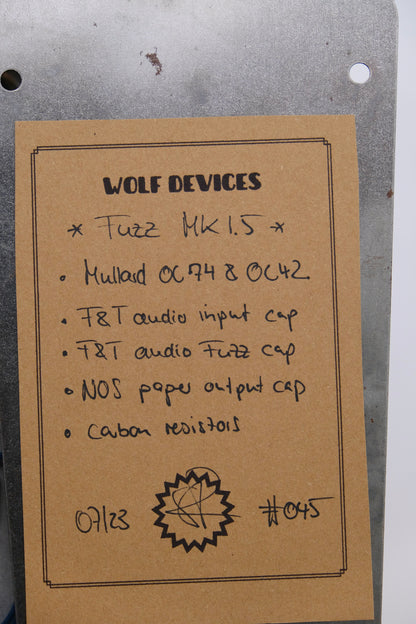 WOLF DEVICES
* Fuzz MK1.5 *
• Mullard OC74 & OC42
• F&T audio input cap
• F&T audio Fuzz cap
• NOS paper output cap
• carbon resistors
07/23 #045